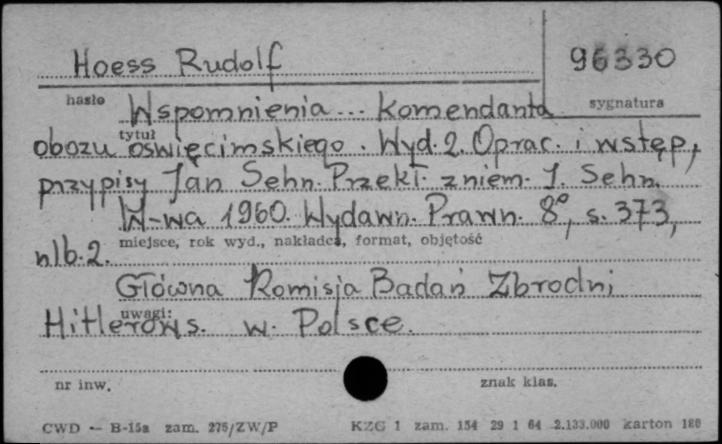 Hoess Rudolf
96330
hasło
sygnatura
Wspomnienia ... Komendanta
tytuł
obozu oświęcimskiego. Wyd. 2. Oprac. i wstęp,
przypisy Jan Sehn. Przekł. z niem. J. Sehn.
W-wa 1960. Wydawn. Prawn. 8°, s. 373,
miejsce, rok wyd., nakładca, format, objętość
nlb. 2.
Główna Komisja Badań Zbrodni
uwagi:
Hitlerows. w Polsce.
nr inw.
znak klas.
CWD — B-15a zam. 275/ZW/P
KZG 1 zam. 154 29 1 64 2.133.000 karton 180